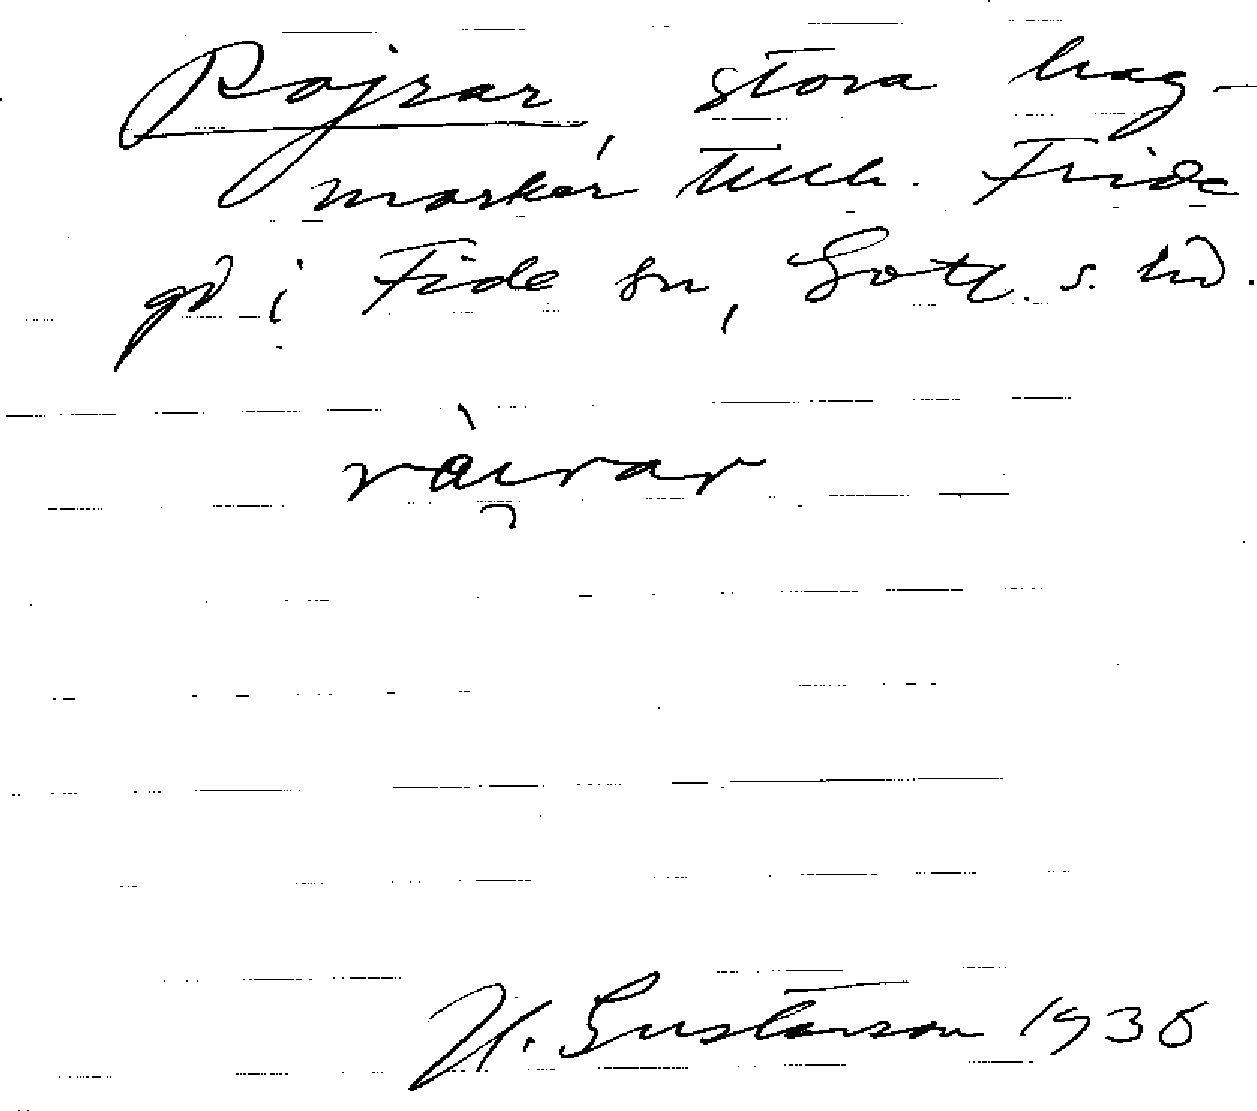 Rojrar, stora hag-
marker, tillh. Fride
gd i Fide sn, Gotl. s. hd.
ràirar
H. Gustavson 1936